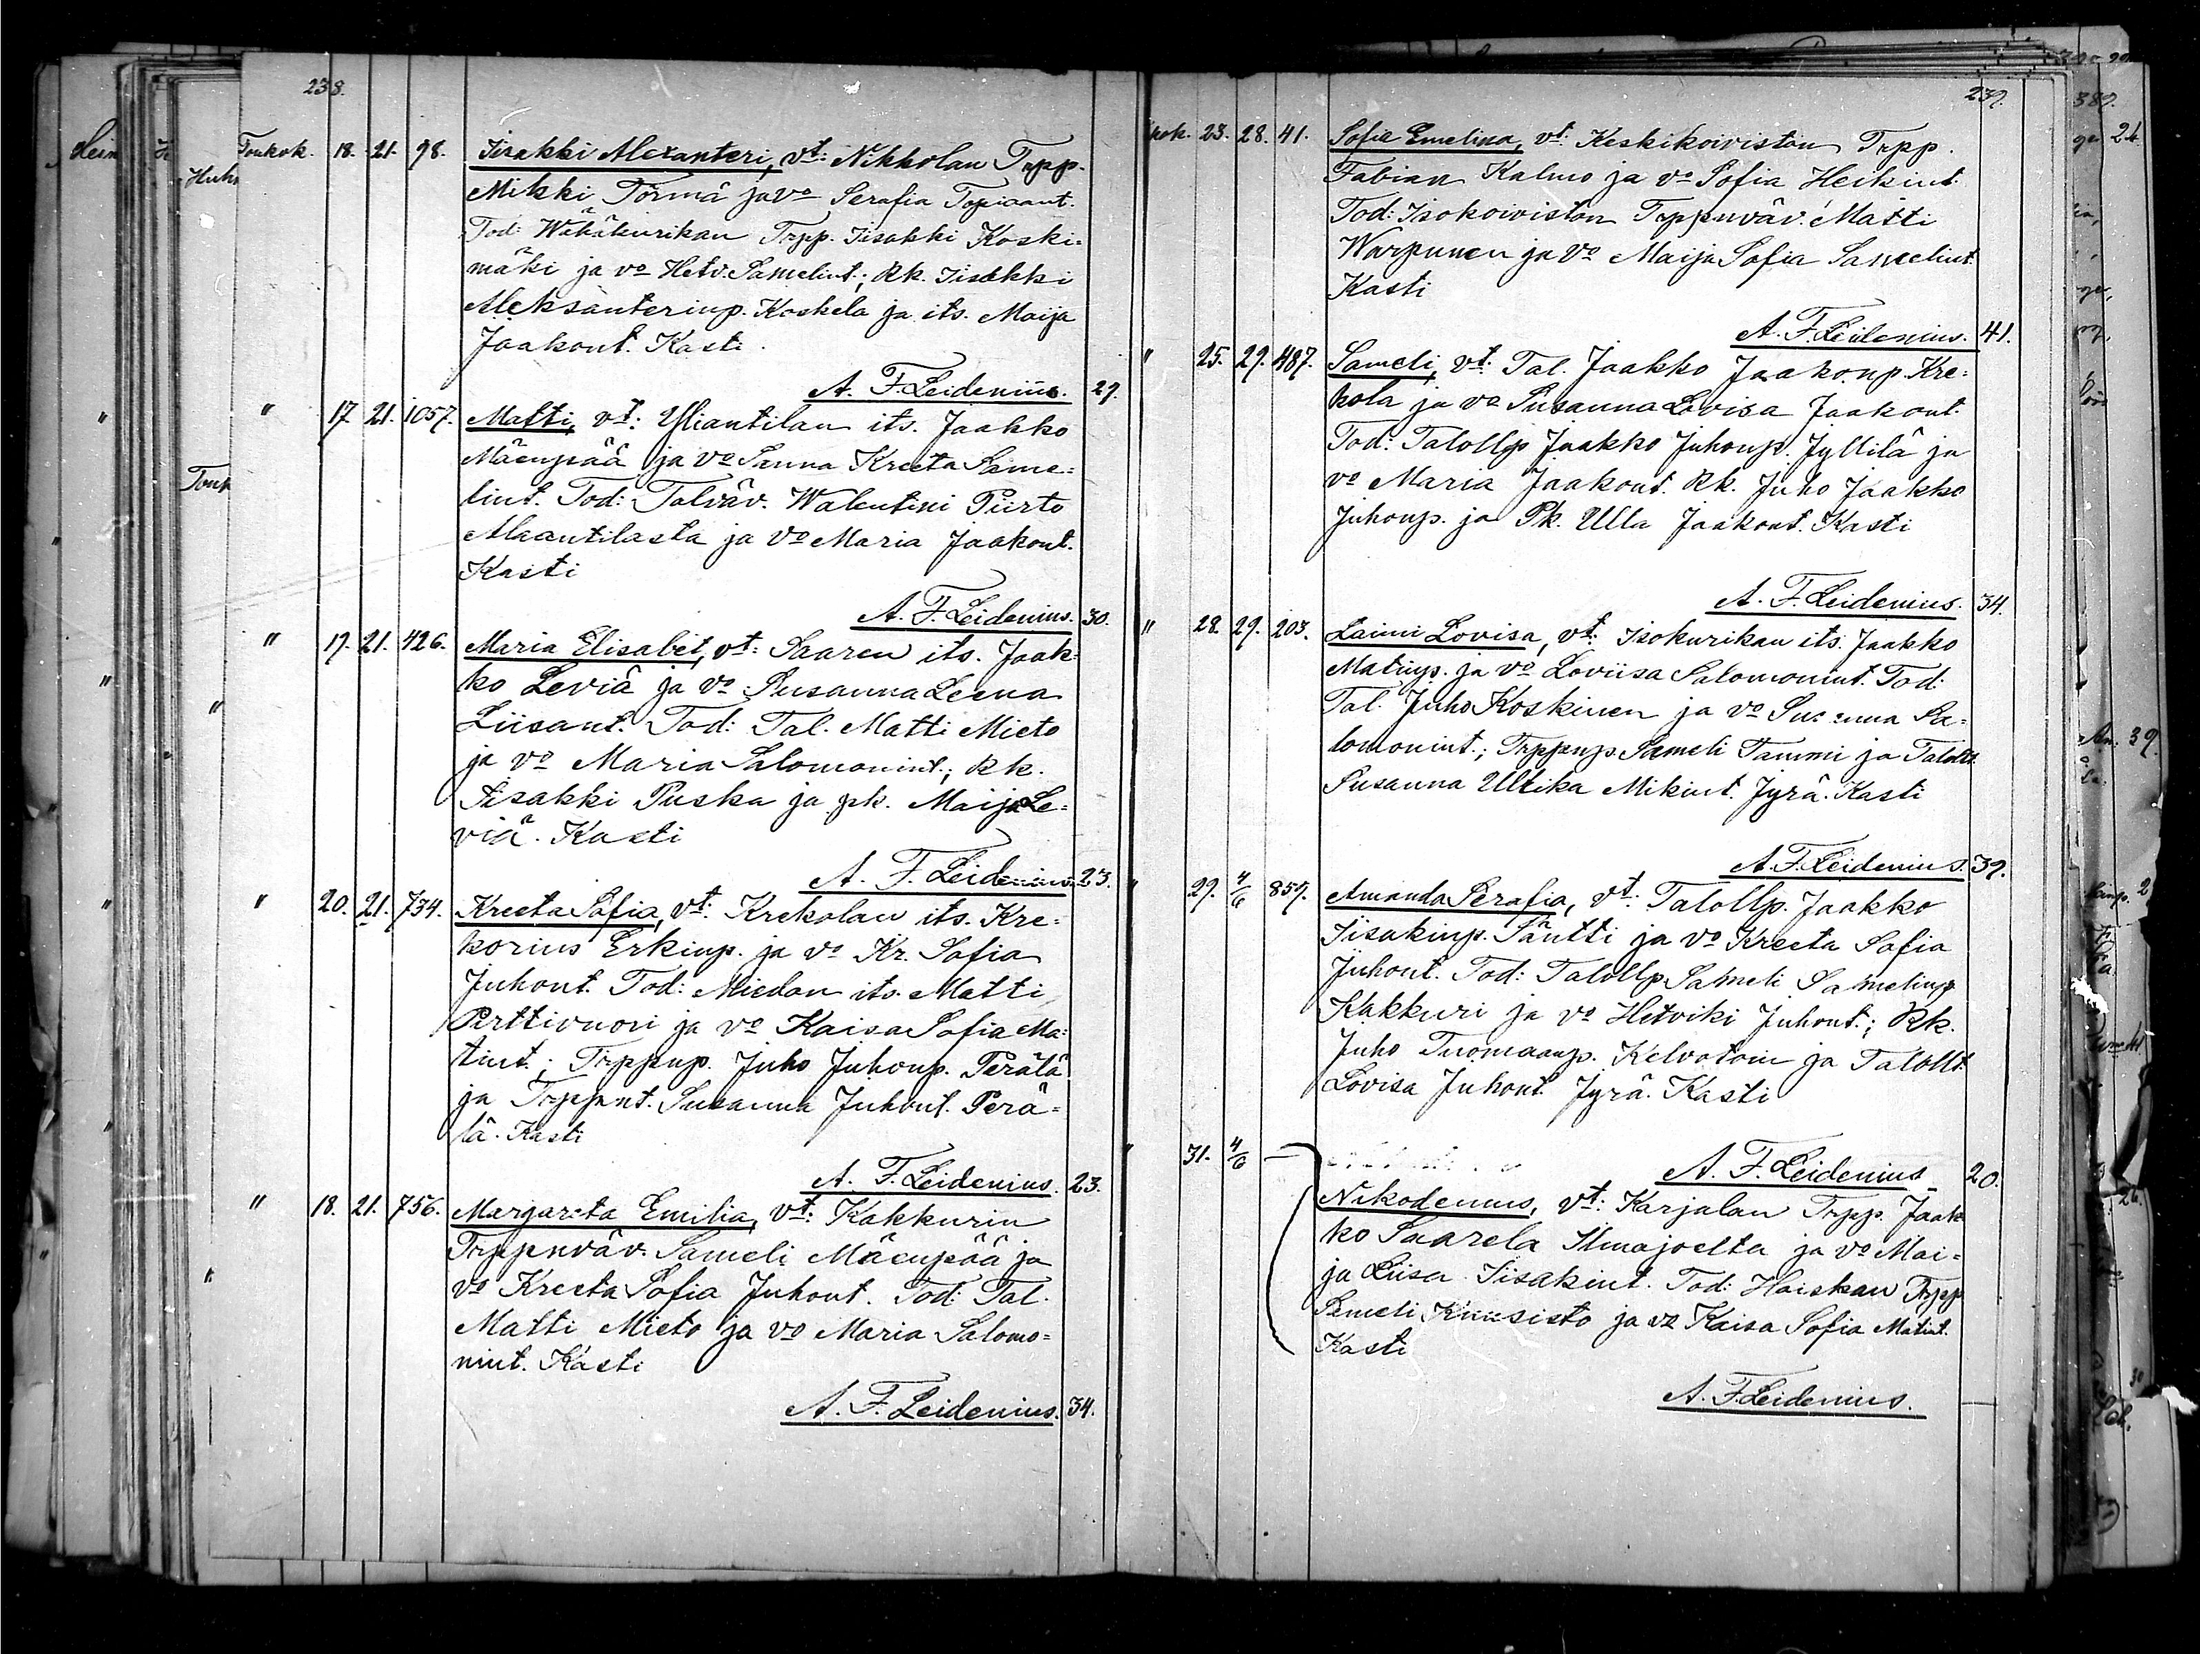 238.
Toukok. 18. 21. 98. Iisakki Alexanteri, vt: Nikkolan Trpp.
Mikki Törmä ja vo Serafia Topiaant.
Tod: Wähäkurikan Trpp. Iisakki Koski=
mäki ja vo Hetv. Samelint.; Rk. Iisakki
Aleksanterinp. Koskela ja its. Maija
Jaakont. Kasti.
A. F. Leidenius. 29.
" 17. 21. 1057. Matti, vt: Yliantilan its. Jaakko
Mäenpää ja vo Sanna Kreeta Same=
lint. Tod: Talväv. Walentini Piirto
Alaantilasta ja vo Maria Jaakont.
Kasti
A. F. Leidenius. 30.
" 19. 21. 426. Maria Elisabet, vt: Saaren its. Jaak=
ko Leviä ja vo Susanna Leena
Liisant. Tod: Tal. Matti Mieto
ja vo Maria Salomonint.; Rk.
Iisakki Puska ja pk. Maija Le=
viä. Kasti
A. F. Leidenius. 23.
" 20. 21. 734. Kreeta Sofia, vt: Krekolan its. Kre=
korius Erkinp. ja vo Kr. Sofia
Juhont. Tod: Miedon its. Matti
Perttivuori ja vo Kaisa Sofia Ma=
tint.; Trppnp. Juho Juhonp. Perälä
ja Trppnt. Susanna Juhont. Perä=
lä. Kasti
A. F. Leidenius. 23.
" 18. 21. 756. Margareta Emilia, vt: Kakkurin
Trppnväv. Sameli Mäenpää ja
vo Kreeta Sofia Juhont. Tod: Tal.
Matti Mieto ja vo Maria Salomo=
nint. Kasti
A. F. Leidenius. 34.
239.
kok. 23. 28. 41. Sofia Emelina, vt: Keskikoiviston Trpp.
Fabian Kalmo ja vo Sofia Heikint.
Tod: Isokoiviston Trppnväv. Matti
Warpunen ja vo Maija Sofia Samelint.
Kasti
A. F. Leidenius. 41.
" 25. 29. 487. Sameli, vt: Tal. Jaakko Jaakonp. Kre=
kola ja vo Susanna Lovisa Jaakont.
Tod: Talollp Jaakko Juhonp. Jyllilä ja
vo Maria Jaakont. Rk. Juho Jaakko
Juhonp. ja Pk. Ulla Jaakont. Kasti
A. F. Leidenius. 34.
" 28. 29. 203. Laimi Lovisa, vt: Isokurikan its. Jaakko
Matinp. ja vo Loviisa Salomonint. Tod:
Tal. Juho Koskinen ja vo Susanna Sa=
lomonint.; Trppnp Sameli Tammi ja Talollt.
Susanna Ulrika Mikint. Jyrä. Kasti
A. F. Leidenius. 39.
" 29. 4/6 859. Amanda Serafia, vt: Talollp. Jaakko
Iisakinp. Säntti ja vo Kreeta Sofia
Juhont. Tod: Talollp Sameli Samelinp
Kakkuri ja vo Hetviki Juhont.; Rk.
Juho Tuomaanp. Kelvotoin ja Talollt
Lovisa Juhont. Jyrä. Kasti
A. F. Leidenius 20.
" 31. 4/6 — Nikodemus, vt: Karjalan Trpp. Jaak
ko Saarela Ilmajoelta ja vo Mai=
ja Liisa Iisakint. Tod: Haiskan Trpp
Sameli Kuusisto ja vo Kaisa Sofia Matint.
Kasti
A. F. Leidenius.